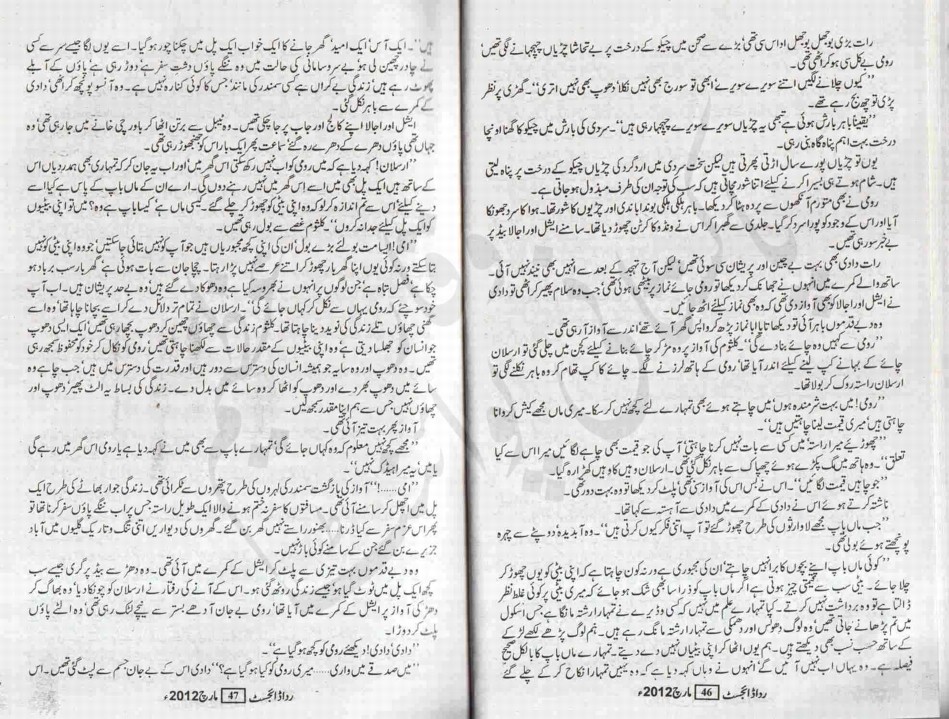 رات بڑی بوجھل بوجھل اداس سی تھی‘ بڑے سے صحن میں چیکو کے درخت پر بے تحاشا چڑیاں چہچہانے لگی تھیں‘
رومی بے کل سی ہو کر اٹھی تھی۔
’’کیوں چلانے لگیں اتنے سویرے سویرے‘ ابھی تو سورج بھی نہیں نکلا‘ دھوپ بھی نہیں اتری‘‘۔ گھڑی پر نظر
پڑی تو چھ بج رہے تھے۔
’’یقیناً باہر بارش ہوئی ہے تبھی یہ چڑیاں سویرے سویرے چہچہا رہی ہیں‘‘۔ سردی کی بارش میں چیکو کا گھنا اونچا
درخت بہت اہم پناہ گاہ بنی رہی۔
یوں تو چڑیاں پورے سال اڑتی پھرتی ہیں لیکن سخت سردی میں ارد گرد کی چڑیاں چیکو کے درخت پر پناہ لیتی
ہیں۔ شام ہوتے ہی بسیرا کرنے کیلئے اتنا شور مچاتی ہیں کہ سب کی توجہ ان کی طرف مبذول ہو جاتی ہے۔
رومی نے بھی متورم آنکھوں سے پردہ ہٹا کر دیکھا۔ باہر ہلکی ہلکی بوندا باندی اور چڑیوں کا شور تھا۔ ہوا کا سرد جھونکا
آیا اور اس کے وجود کو پورا سرد کر گیا۔ جلدی سے گھبرا کر اس نے ونڈو کا کرٹن چھوڑ دیا تھا۔ سامنے ایشل اور اجالا بیڈ پر
بے خبر سو رہی تھیں۔
رات دادی بھی بہت بے چین اور پریشان سی سوئی تھیں‘ لیکن آج تہجد کے بعد سے انہیں بھی نیند نہیں آئی۔
ساتھ والے کمرے میں انہوں نے جھانک کر دیکھا تو رومی جائے نماز پر بیٹھی ہوئی تھی‘ جب وہ سلام پھیر کر اٹھی تو دادی
نے ایشل اور اجالا کو بھی آواز دی تھی کہ وہ بھی نماز کیلئے اٹھ جائیں۔
وہ دبے قدموں باہر آئی تو دیکھا تایا ابا نماز پڑھ کر واپس گھر آئے تھے‘ اندر سے آواز آ رہی تھی۔
’’رومی سے کہیں وہ چائے بنا دے گی‘‘۔ کلثوم کی آواز پر وہ مڑ کر چائے بنانے کیلئے کچن میں چلی گئی تو ارسلان
چائے کے بہانے کپ لینے کیلئے اندر آیا تھا‘ رومی کے ہاتھ لرزنے لگے۔ چائے کا کپ تھام کر وہ باہر نکلنے لگی تو
ارسلان راستہ روک کر بولا تھا۔
’’رومی! میں بہت شرمندہ ہوں‘ میں چاہتے ہوئے بھی تمہارے لئے کچھ نہیں کر سکا۔ میری ماں مجھے کیش کروانا
چاہتی ہیں‘ میری قیمت لینا چاہتیں ہیں‘‘۔
’’چھوڑیئے میرا راستہ‘ میں کسی سے بات نہیں کرنا چاہتی‘ آپ کی جو قیمت بھی چاہے لگائیں میرا اس سے کیا
تعلق‘‘۔ وہ ہاتھ میں مگ پکڑے ہوئے چھپاک سے باہر نکل گئی تھی۔ ارسلان وہیں کا وہیں کھڑا رہ گیا۔
’’جو چاہیں قیمت لگائیں‘‘۔ اس نے بس اس کی آواز سنی تھی‘ پلٹ کر دیکھا تو وہ بہت دور تھی۔
ناشتہ کرتے ہوئے اس نے دادی کے کمرے میں دادی سے آہستہ سے کہا تھا۔
’’جب ماں باپ مجھے لاوارثوں کی طرح چھوڑ گئے تو آپ اتنی فکر کیوں کرتی ہیں‘‘۔ وہ آبدیدہ دوپٹے سے چہرہ
پونچھتے ہوئے بولی تھی۔
’’کوئی ماں باپ اپنے بچوں کا برا نہیں چاہتے‘ ان کی مجبوری ہے ورنہ کون چاہتا ہے کہ اپنی بیٹی کو یوں چھوڑ کر
چلا جائے۔ بیٹی سب سے قیمتی چیز ہوتی ہے اگر ماں باپ کو ذرا سا بھی شک ہو جائے کہ میری بیٹی پر کوئی غلط نظر
ڈالتا ہے تو وہ برداشت نہیں کرتے۔ کیا تمہارے علم میں نہیں کہ کسی وڈیرے نے تمہارا رشتہ مانگا ہے جس اسکول
میں تم پڑھانے جاتی تھیں‘ وہ لوگ دھونس اور دھمکی سے تمہارا رشتہ مانگ رہے ہیں۔ ہم لوگ پڑھے لکھے لڑکے
کے ساتھ حسب نسب بھی دیکھتے ہیں۔ ہم یوں اٹھا کر اپنی بیٹیاں نہیں دے دیتے۔ تمہارے ماں باپ کا بالکل صحیح
فیصلہ ہے۔ وہ یہاں اب نہیں آئیں گے‘ انہوں نے وہاں کہہ دیا ہے کہ وہ یہیں تمہارا نکاح کر کے چلے گئے
رداڈائجسٹ 46 مارچ 2012ء
ہیں‘‘۔ ایک آس‘ ایک امید‘ گھر جانے کا ایک خواب ایک پل میں چکنا چور ہو گیا۔ اسے یوں لگا جیسے سر سے کسی
نے چادر چھین لی ہو‘ بے سروسامانی کی حالت میں وہ ننگے پاؤں دشت سفر ہے‘ دوڑ رہی ہے‘ پاؤں کے آبلے
پھوٹ رہے ہیں‘ زندگی بے کراں ہے کسی سمندر کی مانند‘ جس کا کوئی کنارہ نہیں ہے۔ وہ آنسو پونچھ کر اٹھی‘ دادی
کے کمرے سے باہر نکل گئی۔
ایشل اور اجالا اپنے کالج اور جاب پر جا چکی تھیں۔ وہ ٹیبل سے برتن اٹھا کر باورچی خانے میں جا رہی تھی‘ وہ
جہاں تھی پاؤں دھرے کے دھرے رہ گئے‘ سماعت پھر ایک بار اس کو جھنجھوڑ رہی تھی۔
’’ارسلان! کہہ دیا ہے کہ میں رومی کو اب نہیں رکھ سکتی اس گھر میں‘ اور اب یہ جان کر کہ تمہاری بھی ہمدردیاں اس
کے ساتھ ہیں ایک پل بھی میں اسے اس گھر میں نہیں رہنے دوں گی۔ ارے ان کے ماں باپ کے پاس ہے کیا اسے
دینے کیلئے‘ اس سے تم اندازہ کر لو کہ وہ اپنی بیٹی کو چھوڑ کر چلے گئے۔ کیسی ماں ہے‘ کیسا باپ ہے وہ؟ میں تو اپنی بیٹیوں
کو ایک پل کیلئے جدا نہ کروں‘‘۔ کلثوم غصے سے بول رہی تھیں۔
’’امی! ایسا مت بولئے بڑے بول‘ ان کی اپنی کچھ مجبوریاں ہیں جو آپ کو نہیں بتائی جا سکتیں‘ جو وہ اپنی بیٹی کو نہیں
بتا سکتے ورنہ کوئی یوں اپنا گھر بار چھوڑ کر اتنے عرصے نہیں پڑا رہتا۔ چچا جان سے بات ہوئی ہے‘ گھر یار سب برباد ہو
چکا ہے‘ فصل تباہ ہے‘ جن لوگوں پر انہوں نے بھروسہ کیا ہے وہ دھوکا دے گئے ہیں‘ وہ بے حد پریشان ہیں۔ اب آپ
خود سوچئے کہ رومی یہاں سے نکل کر کہاں جائے گی‘‘۔ ارسلان نے تمام تر دلائل دے کر اسے بچانا چاہا تھا‘ وہ اسے
گھنی چھاؤں تلے زندگی کی نوید دینا چاہتا تھا۔ کلثوم زندگی سے چھاؤں چھین کر دھوپ بچھا رہی تھیں‘ ایک ایسی دھوپ
جو انسان کو جھلسا دیتی ہے‘ وہ اپنی بیٹیوں کے مقدر حالات سے لکھنا چاہتی تھیں‘ رومی کو نکال کر خود کو محفوظ سمجھ رہی
تھیں۔ وہ دھوپ اور وہ سایہ جو ہمیشہ انسان کی دسترس سے دور ہیں اور قدرت کی دسترس میں ہیں‘ جب چاہے وہ
سائے میں دھوپ بھر دے اور دھوپ کو اٹھا کر وہ سائے میں بدل دے۔ زندگی کی بساط یہ الٹ پھیر‘ دھوپ اور
چھاؤں نہیں‘ جس سے ہم اپنا مقدر سمجھ لیں۔
آواز پھر بہت تیز آئی تھی۔
’’مجھے کچھ نہیں معلوم کہ وہ کہاں جائے گی‘ تمہارے باپ سے بھی میں نے کہہ دیا ہے یا رومی اس گھر میں رہے گی
یا میں‘ یہ میرا ہیڈک نہیں‘‘۔
’’امی......!‘‘ آواز کی بازگشت سمندر کی لہروں کی طرح پتھروں سے ٹکرائی تھی۔ زندگی جوار بھاٹے کی طرح ایک
پل میں اچھل کر سامنے آئی تھی۔ مسافتوں کا سفر نہ ختم ہونے والا ایک طویل راستہ جس پر اب ننگے پاؤں سفر کرنا تھا‘ تو
پھر اس عزم سفر سے کیا ڈرنا..... بھنور راستے نہیں گھر بن گئے۔ گھروں کی دیواریں اتنی تنگ و تاریک گلیوں میں آباد
جزیرے بن گئے جن کے سامنے کوئی باڑ نہیں۔
وہ دبے قدموں بہت تیزی سے پلٹ کر ایشل کے کمرے میں آئی تھی۔ وہ دھڑ سے بیڈ پر گری جیسے سب
کچھ ایک پل میں ٹوٹ گیا ہو‘ جیسے زندگی روٹھ گئی ہو۔ اس کے آنے کی رفتار نے ارسلان کو چونکا دیا‘ وہ بھاگ کر
دھڑ کی آواز پر ایشل کے کمرے میں آیا تھا‘ رومی بے جان آدھے بستر سے نیچے لٹک رہی تھی‘ وہ الٹے پاؤں
پلٹ کر دوڑا۔
’’دادی‘ دادی! دیکھئے رومی کو کچھ ہو گیا ہے‘‘۔
’’میں صدقے میں واری..... میری رومی کو کیا ہو گیا ہے؟‘‘ دادی اس کے بے جان جسم سے لپٹ گئی تھیں۔ اس
رداڈائجسٹ 47 مارچ 2012ء